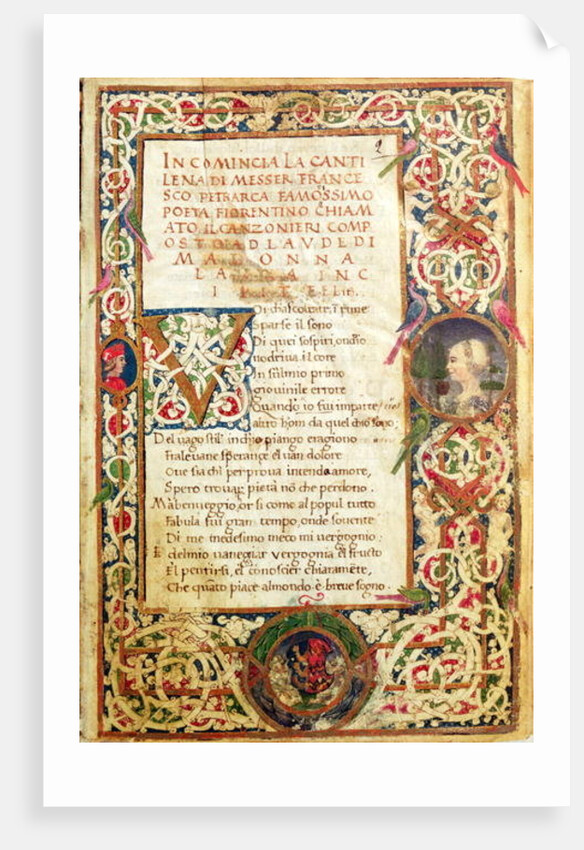 2
IN COMINCIA LA CANTI
LENA DI MESSER FRANCE
SCO PETRARCA FAMOSSIMO
POETA FIORENTINO CHIAM
ATO IL CANZONIERI COMP
OSTO AD LAVDE DI
MADONNA
INC
FELIT.
VOi chascoltate ī rime
Sparse il sono
Di quei sospiri, ondio
nodriva il core
In sūl mio primo
giouinile errore
Quando io fui imparte
altro hom da quel chio sono;
Del uago stil' in chio piango eragiono
Fra le uane sperance el uan dolore
Oue sia chi per proua intenda amore,
Spero trouar pietà nō che perdono.
Mà ben ueggio, or si come al popul tutto
Fabula fui gran tempo, onde souente
Di me medesimo meco mi uergogno:
E del mio uanegiar vergognia è'l frusto
El pentirsi, el conoscier chiaramēte,
Che quāto piace al mondo è breue sogno.